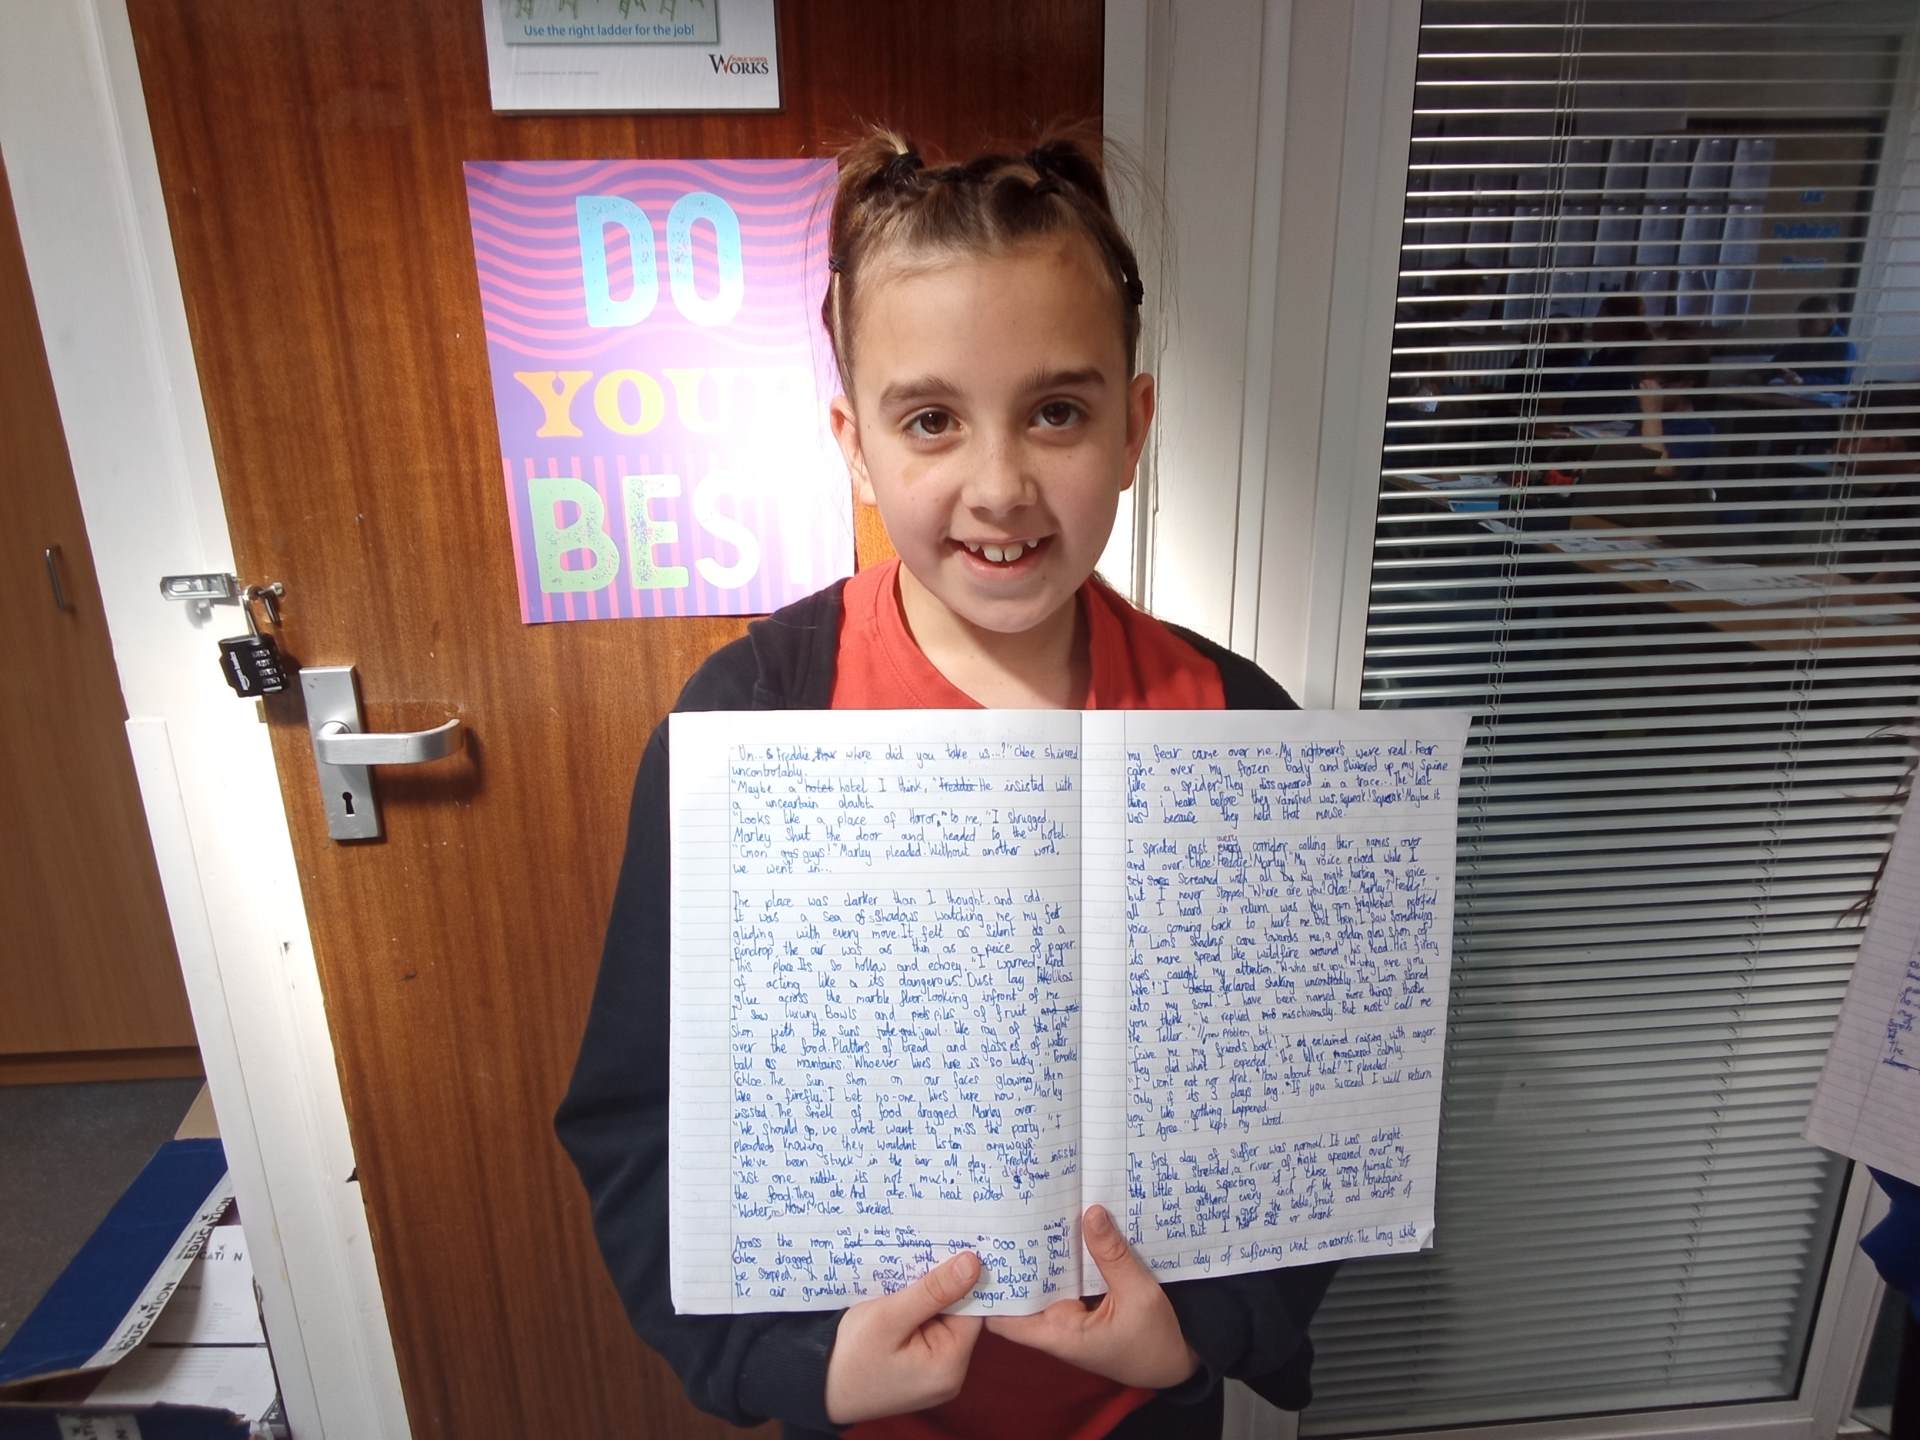 Use the right ladder for the job!
PUBLIC SCHOOL
WORKS
DO
YOUR
BEST
"Um... Freddie, where did you take us...?" Chloe shivered
uncontrolably.
"Maybe a hotel hotel I think," Freddie He insisted with
a unceartain doubt.
"Looks like a place of Horror, to me, "I shrugged.
Marley shut the door and headed to the hotel.
"C'mon guys!" Marley pleaded. Without another word,
we went in...
The place was darker than I thought, and cold.
It was a sea of Shadows watching me, my feet
gliding with every move. It felt as silent as a
pindrop, the air was as thin as a peice of paper.
"This place Its so hollow and echoey. "I warned, kind
of acting like its dangerous. Dust lay like
glue across the marble floor. Looking infront of me
I saw luxury Bowls and piles of fruit
Shon with the suns jewl. like ray of light
over the food. Platters of bread and glasses of water
tall as mountains. "Whoever lives here is so lucky," remarked
Chloe. The sun shon on our faces glowing then
like a firefly. "I bet no-one lives here now, "Marley
insisted. The smell of food dragged Marley over.
"We should go, we don't want to miss the party, "I
pleaded knowing they wouldnt listen anyways.
"We've been stuck in the car all day. "Freddie insisted
"Just one nibble, its not much." They into
the food. They ate And ate. The heat picked up.
"Water, Now!" Chloe shreiked.
was a baby mouse.
Across the room sat a shining gem "Ooo an animal
Chloe dragged Freddie over with before they could
be stopped, all 3 passed between them.
The air grumbled. The anger. Just then,
my fear came over me. My nightmares were real. Fear
came over my frozen body and slivered up my spine
like a spider. They dissapeared in a trace... The last
thing i heard before they vanished was, squeak! Squeak! Maybe it
was because they held that mouse.
I sprinted past every corridor, calling their names over
and over. "Chloe! Freddie! Marley!" My voice echoed while I
Screamed with all my might hurting my voice
but I never stopped. "Where are you! Chloe! Marley? Freddie?..."
all I heard in return was my own frightened petrified
voice coming back to hurt me. But then, I saw something.
A Lion's shadow came towards me, a golden glow shon of
its mane spread like wildfire around his head. His firey
eyes caught my attention. "W-who are you! W-why are you
here!" I declared shaking uncontrolably. The Lion stared
into my soul. "I have been named more things than
you think," he replied mischivously. But most call me
the Teller."
"Give me my friends back!" I exclaimed raising with anger.
"They did what I expected." The teller answered calmly.
"I wont eat nor drink, "How about that?" I pleaded.
"Only if its 3 days long. "If you succeed I will return
you like nothing happened.
"I Agree." I kept my word.
The first day of suffer was normal. It was alright.
The table stretched, a river of might apeared over my
little body if I chose wrong. Animals of
all kind gathered every inch of the table. Mountains
of feasts gathered over the table, fruit and drinks of
all kind. But I never ate or drank.
second day of suffering went onwards. The long while
EDUCATION
EDUCATION